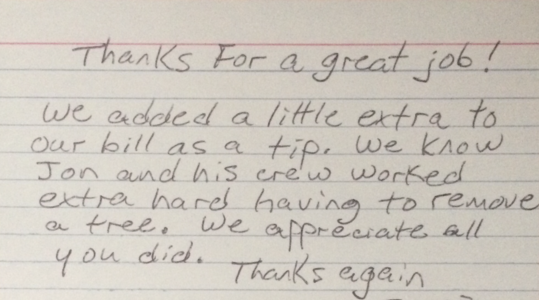 Thanks For a great job!
We added a little extra to
our bill as a tip. We know
Jon and his crew worked
extra hard having to remove
a tree. We appreciate all
you did. Thanks again